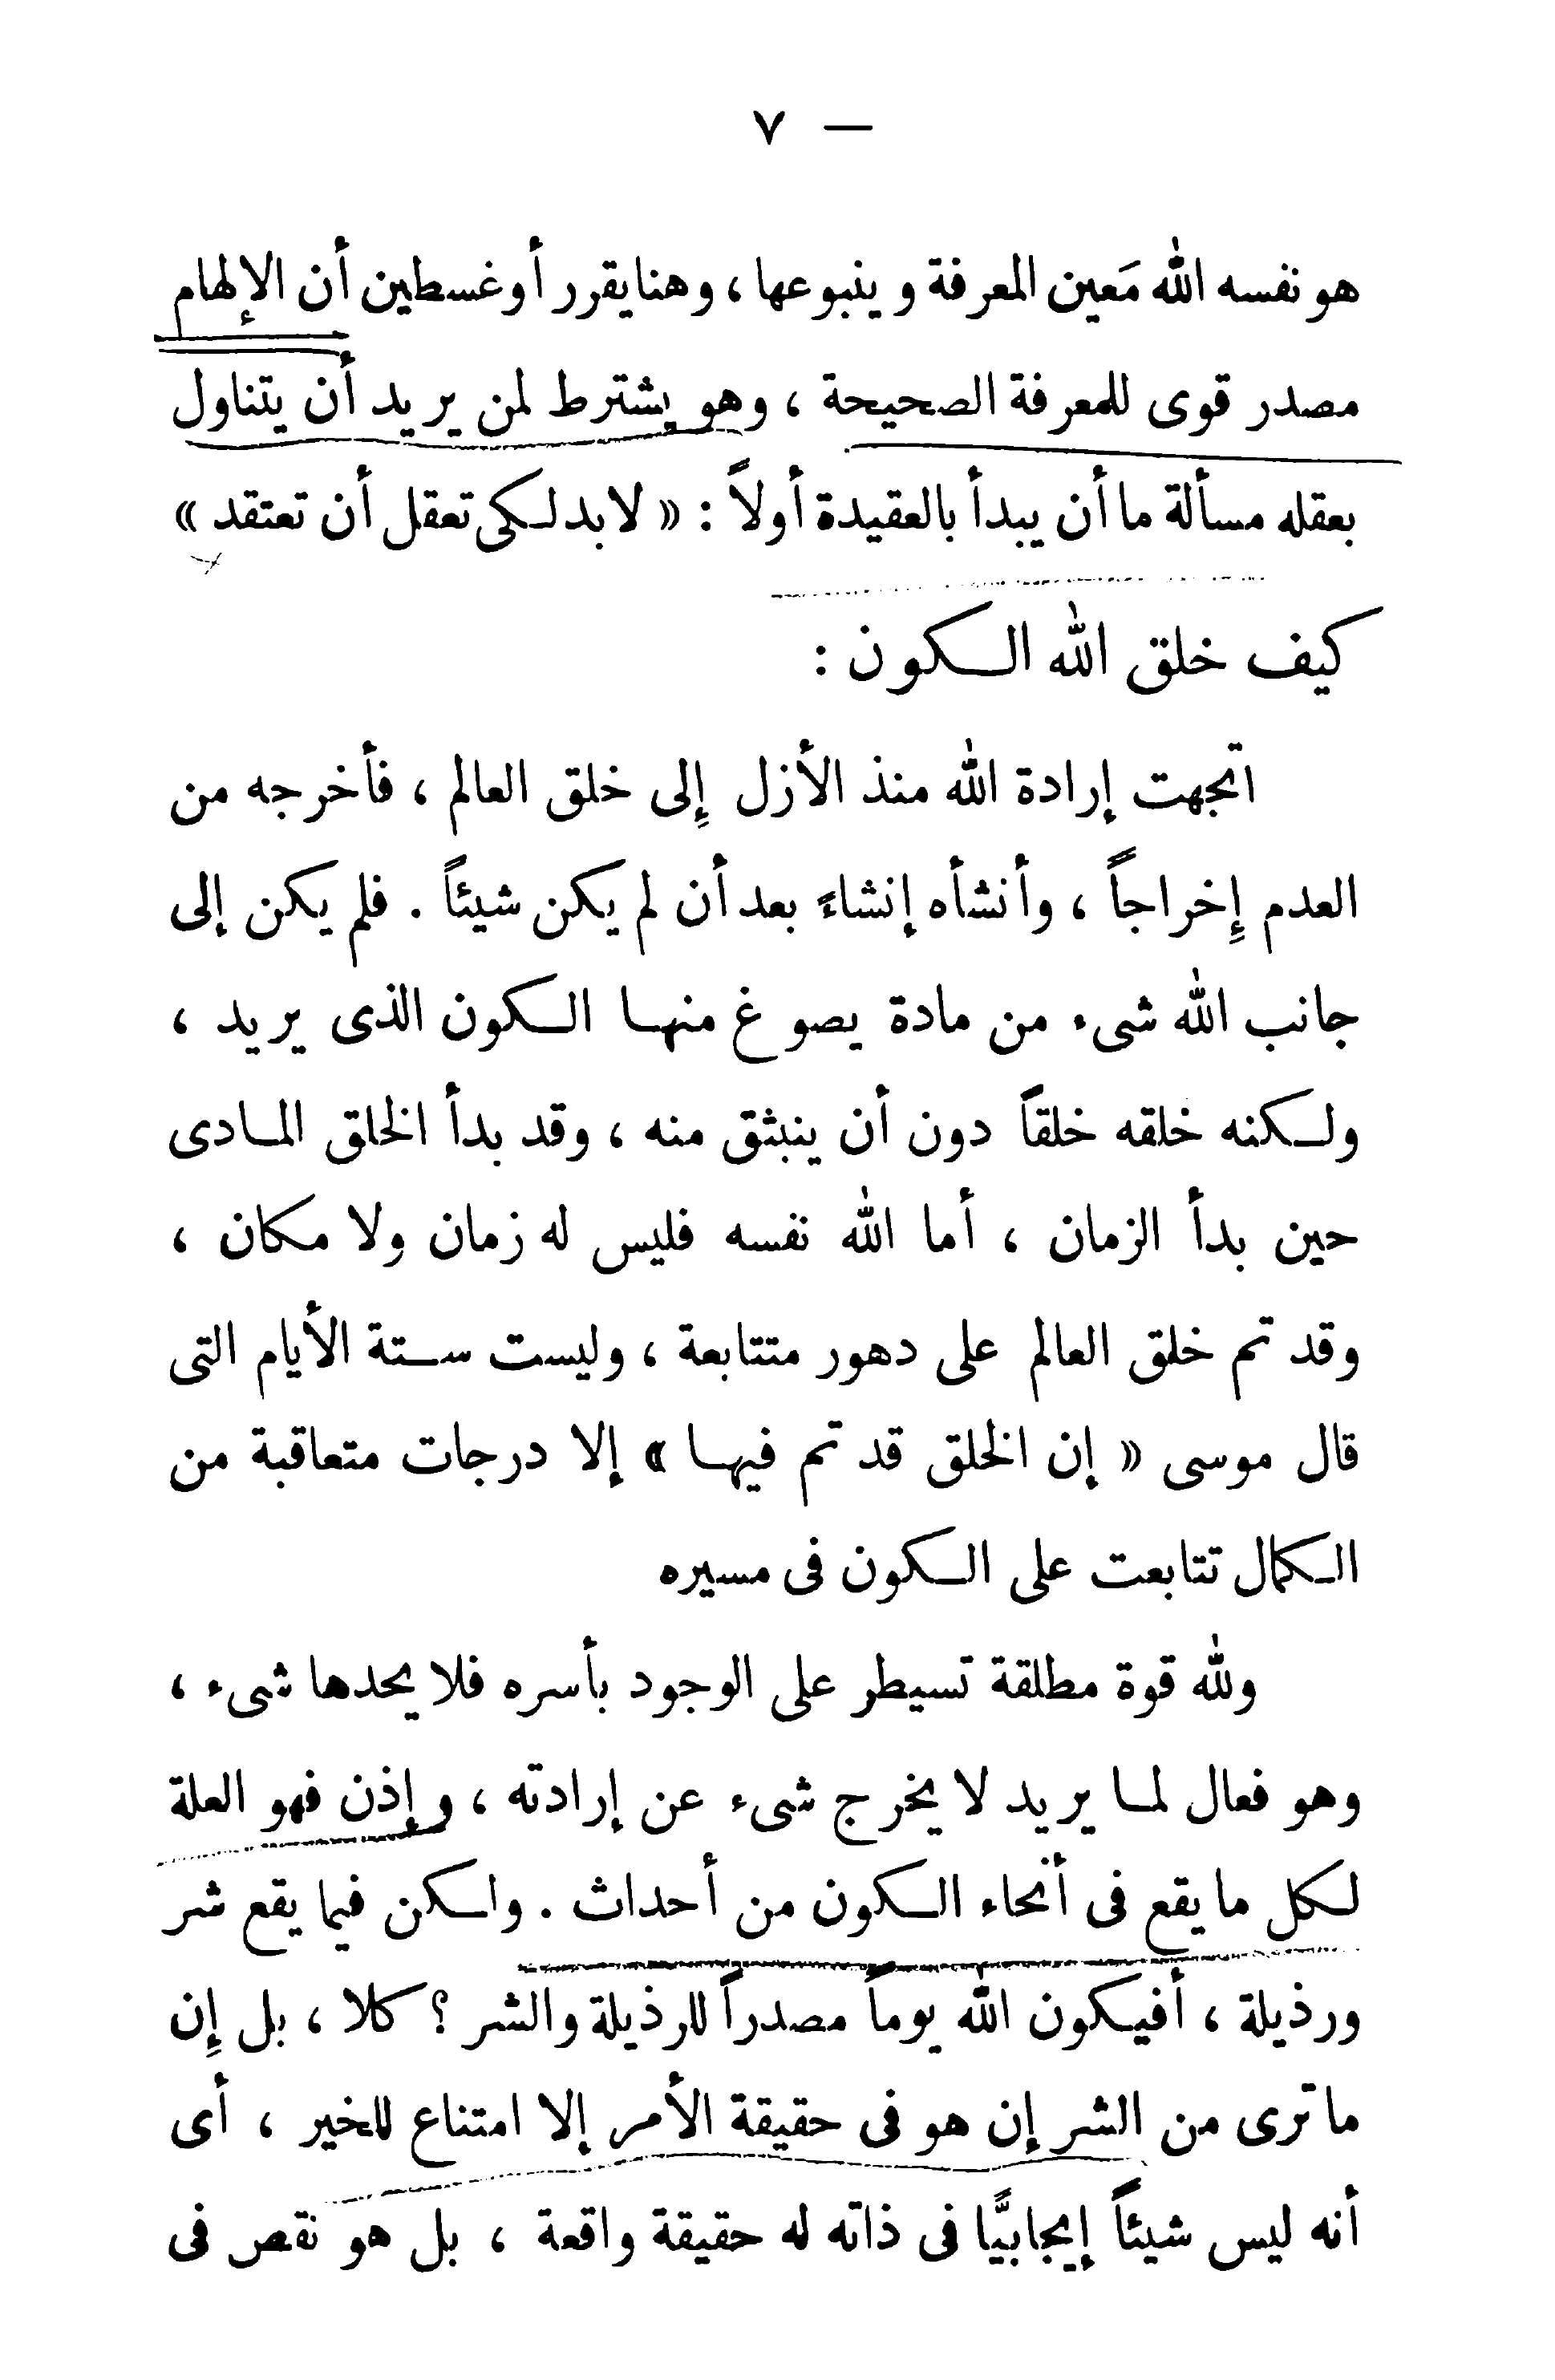 — ٧
هو نفسه الله مَعين المعرفة وينبوعها ، وهنا يقرر أوغسطين أن الإلهام
مصدر قوى للمعرفة الصحيحة ، وهو يشترط لمن يريد أن يتناول
بعقله مسألة ما أن يبدأ بالعقيدة أولاً : « لابد لكى تعقل أن تعتقد »
كيف خلق الله الكون :
اتجهت إرادة الله منذ الأزل إلى خلق العالم ، فأخرجه من
العدم إخراجاً ، وأنشأه إنشاءً بعد أن لم يكن شيئاً . فلم يكن إلى
جانب الله شىء من مادة يصوغ منها الكون الذى يريد ،
ولكنه خلقه خلقاً دون أن ينبثق منه ، وقد بدأ الخلق المادى
حين بدأ الزمان ، أما الله نفسه فليس له زمان ولا مكان ،
وقد تم خلق العالم على دهور متتابعة ، وليست ستة الأيام التى
قال موسى « إن الخلق قد تم فيها » إلا درجات متعاقبة من
الكمال تتابعت على الكون فى مسيره
ولله قوة مطلقة تسيطر على الوجود بأسره فلا يحدها شىء ،
وهو فعال لما يريد لا يخرج شىء عن إرادته ، وإذن فهو العلة
لكل ما يقع فى أنحاء الكون من أحداث . ولكن فيما يقع شر
ورذيلة ، أفيكون الله يوماً مصدراً للرذيلة والشر ؟ كلا ، بل إن
ما ترى من الشر إن هو فى حقيقة الأمر إلا امتناع للخير ، أى
أنه ليس شيئاً إيجابيًّا فى ذاته له حقيقة واقعة ، بل هو نقص فى